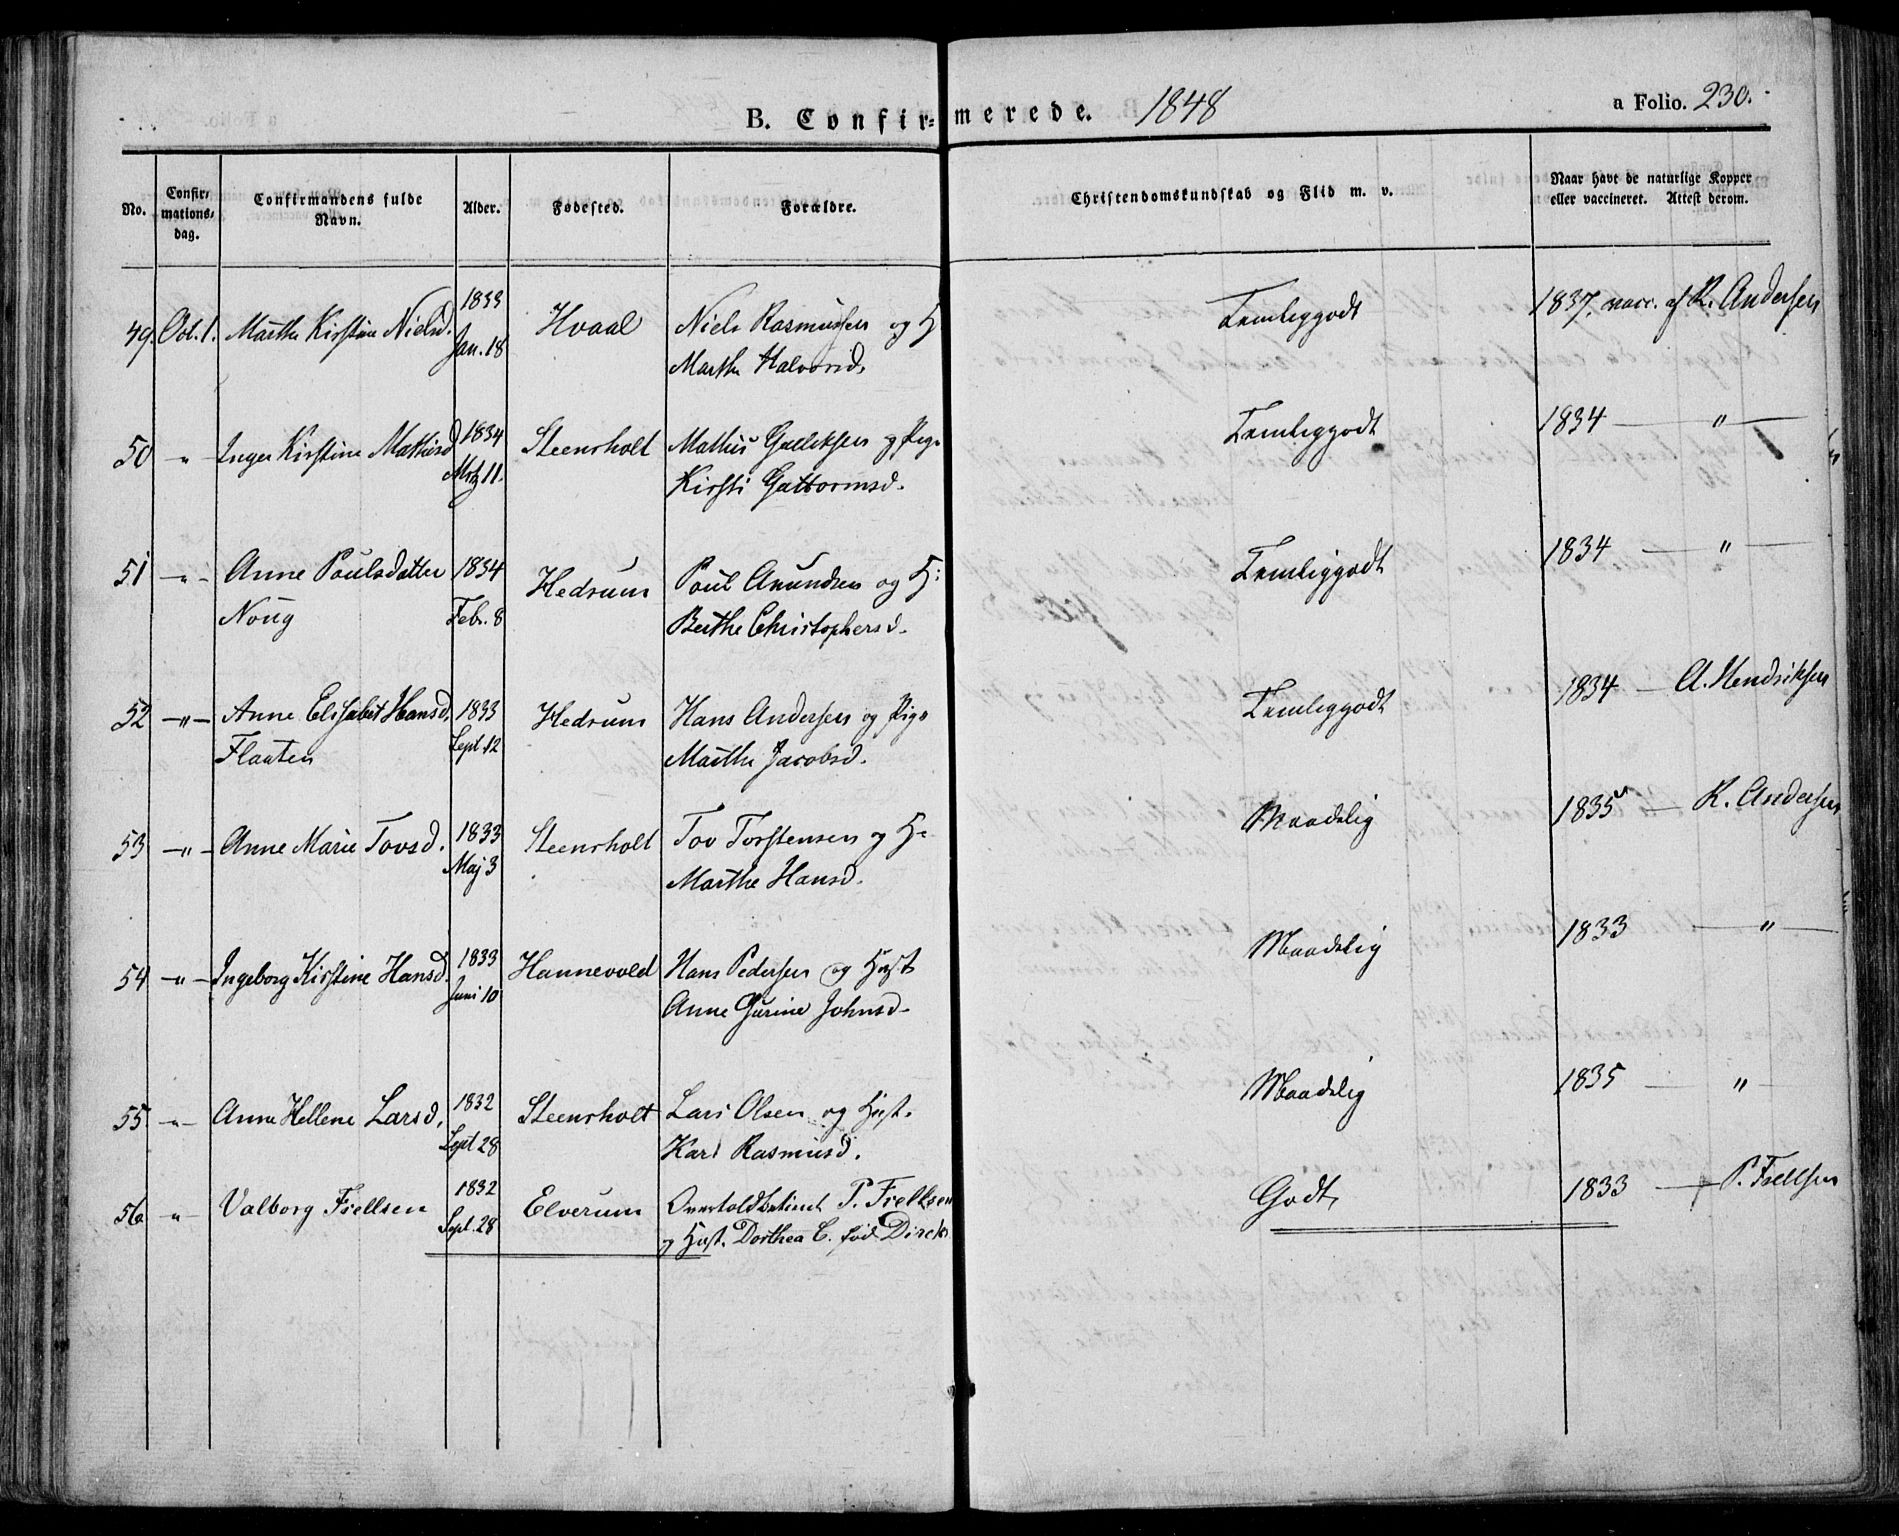 B. Confir=merede. 1848
a Folio. 230.
No.
Confir-
mations-
dag.
Confirmandens fulde
Navn.
Alder.
Fødested.
Forældre.
Christendomskundskab og Flid m. v.
Naar havt de naturlige Kopper
eller vaccineret. Attest derom.
49. Oct. 1. Marthe Kirstine Nielsd. 1833 Jan. 18 Hvaal Niels Rasmussen og H Temliggodt 1837. vacc. af R. Andersen
Marthe Halvorsd.
50 " Inger Kirstine Mathisd 1834 Mtz 11. Steensholt Mathis Gulliksen og Pige Temliggodt 1834 — " —
Kirsti Guttormsd.
51 - " - Anne Poulsdatter 1834 Febr. 8 Hedrum Poul Anundsen og H: Temliggodt 1834 — " —
Noug Berthe Christophersd.
52 - " - Anne Elisabet Hansd. 1833 Sept. 12 Hedrum Hans Andersen og Pige Temliggodt 1834 — A. Hendriksen
Flaaten Marthe Jacobsd.
53 - " - Anne Marie Tovsd. 1833 Maj 3 Steensholt Tov Torstensen og H: Maadelig 1835 — R. Andersen
Marthe Hansd.
54 - " - Ingeborg Kirstine Hansd. 1833 Juni 10 Hannevold Hans Pedersen og Hust Maadelig 1833 — " —
Anne Gurine Johnsd.
55 - " - Anne Hellene Larsd. 1832 Sept 28 Steensholt Lars Olsen og Hust. Maadelig 1835 — "
Kari Rasmusd.
56 " Valborg Fiellsen 1832 Sept. 28 Elverum Overtoldbetient P. Fiellsen Godt 1833 — P. Fiellsen
og Hust. Dorthea C. fød Dircks